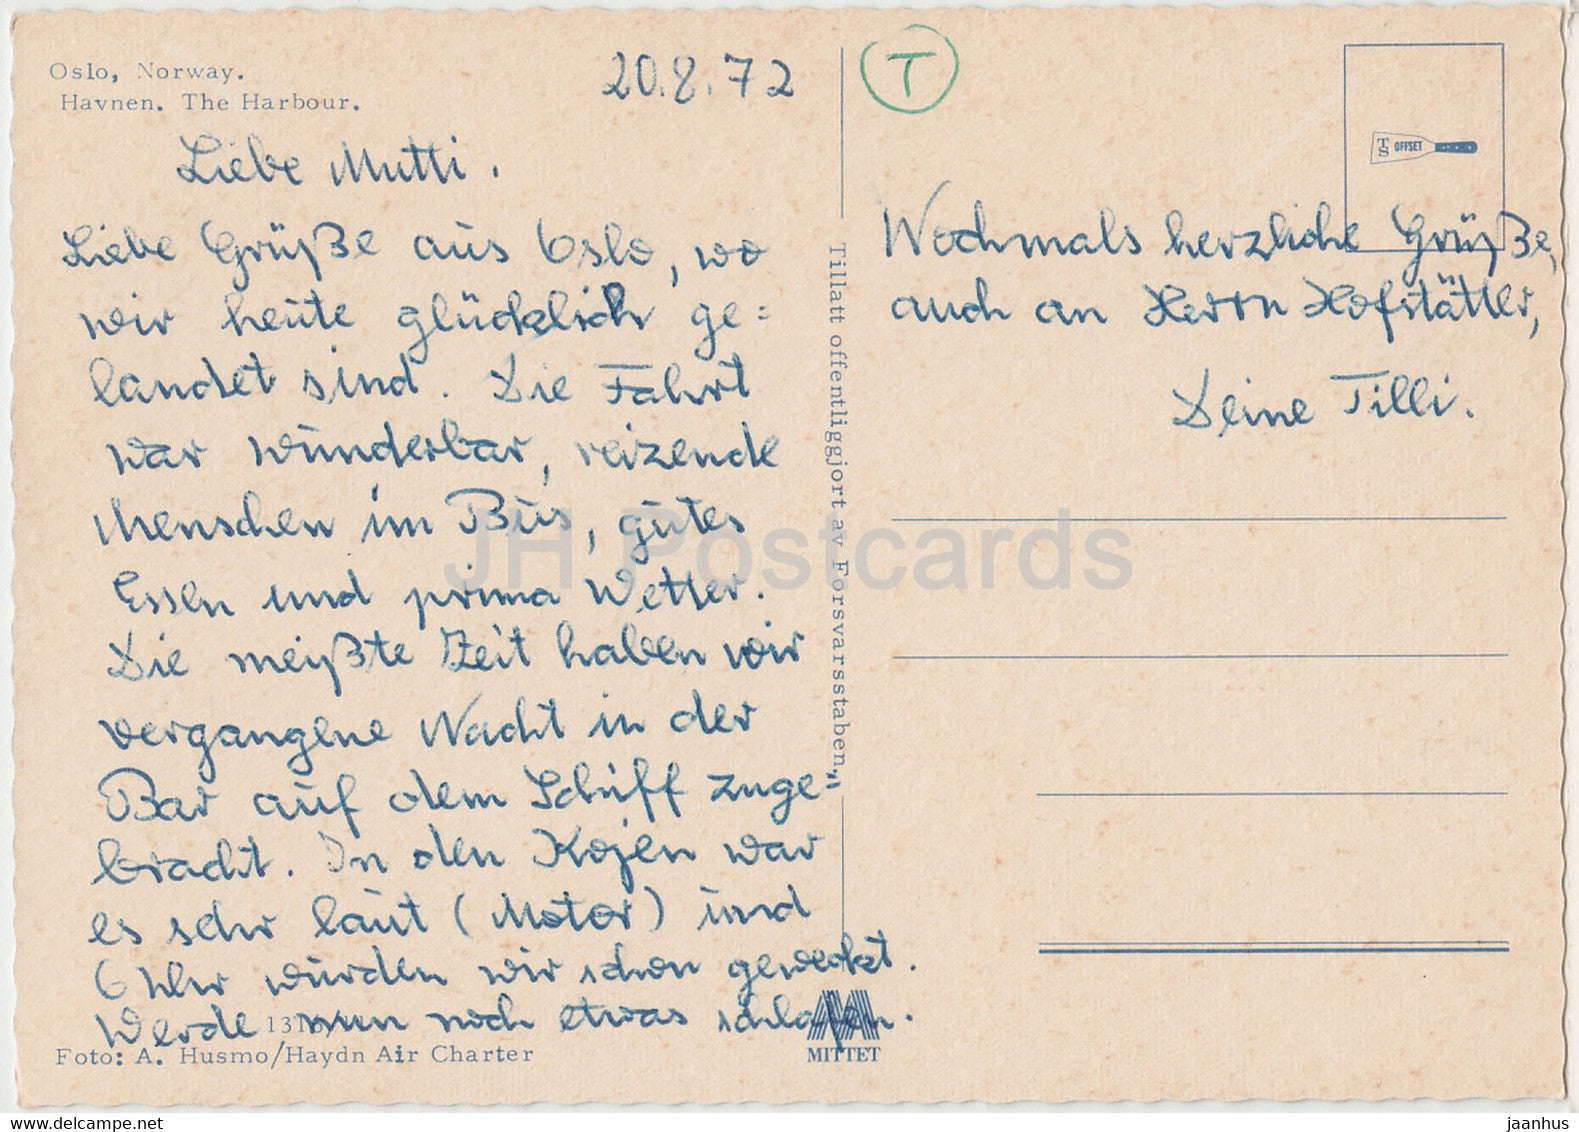 Oslo, Norway.
Havnen. The Harbour.
20.8.72
T
TS OFFSET
Liebe Mutti.
Liebe Grüße aus Oslo, wo
wir heute glücklich ge=
landet sind. Die Fahrt
war wunderbar, reizende
Menschen im Bus, gutes
Essen und prima Wetter.
Die meißte Zeit haben wir
vergangene Nacht in der
Bar auf dem Schiff zuge=
bracht. In den Kojen war
es sehr laut (Motor) und
6 Uhr wurden wir schon geweckt.
Werde nun noch etwas schlafen.
Foto: A. Husmo/Haydn Air Charter
MITTET
Tillatt offentliggjort av Forsvarsstaben.
Nochmals herzliche Grüße,
auch an Herrn Hofstätter,
Deine Tilli.
JH Postcards
www.delcampe.net
jaanhus